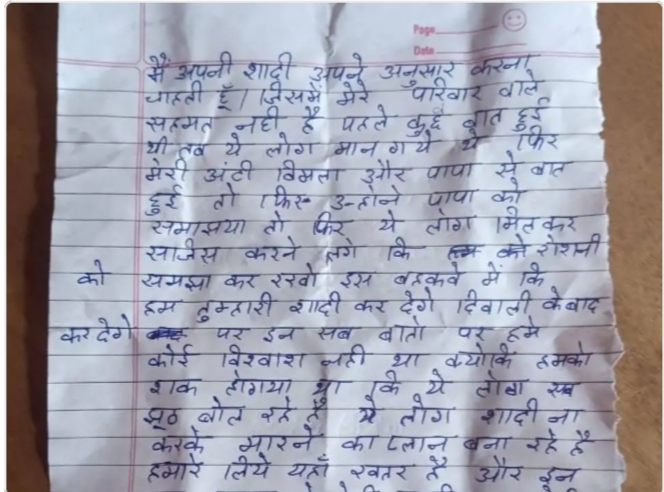 Page
Date
मैं अपनी शादी अपने अनुसार करना
चाहती हूँ। जिसमें मेरे परिवार वाले
सहमत नही है पहले कुछ बात हुई
थी तब ये लोग मान गये थे फिर
मेरी अंटी विमला और पापा से बात
हुई तो फिर उन्होने पापा को
समाझया तो फिर ये लोग मिलकर
साजिस करने लगे कि रोशनी
को समझा कर रखो इस बहकवे में कि
हम तुम्हारी शादी कर देगे दिवाली के बाद
कर देगे पर इन सब बातो पर हमे
कोई विश्वाश नही था क्योकि हमको
शक होगया था कि ये लोग सब
झूठ बोल रहे है ये लोग शादी ना
करके मारने का प्लान बना रहे है
हमारे लिये यहाँ खतर है और इन